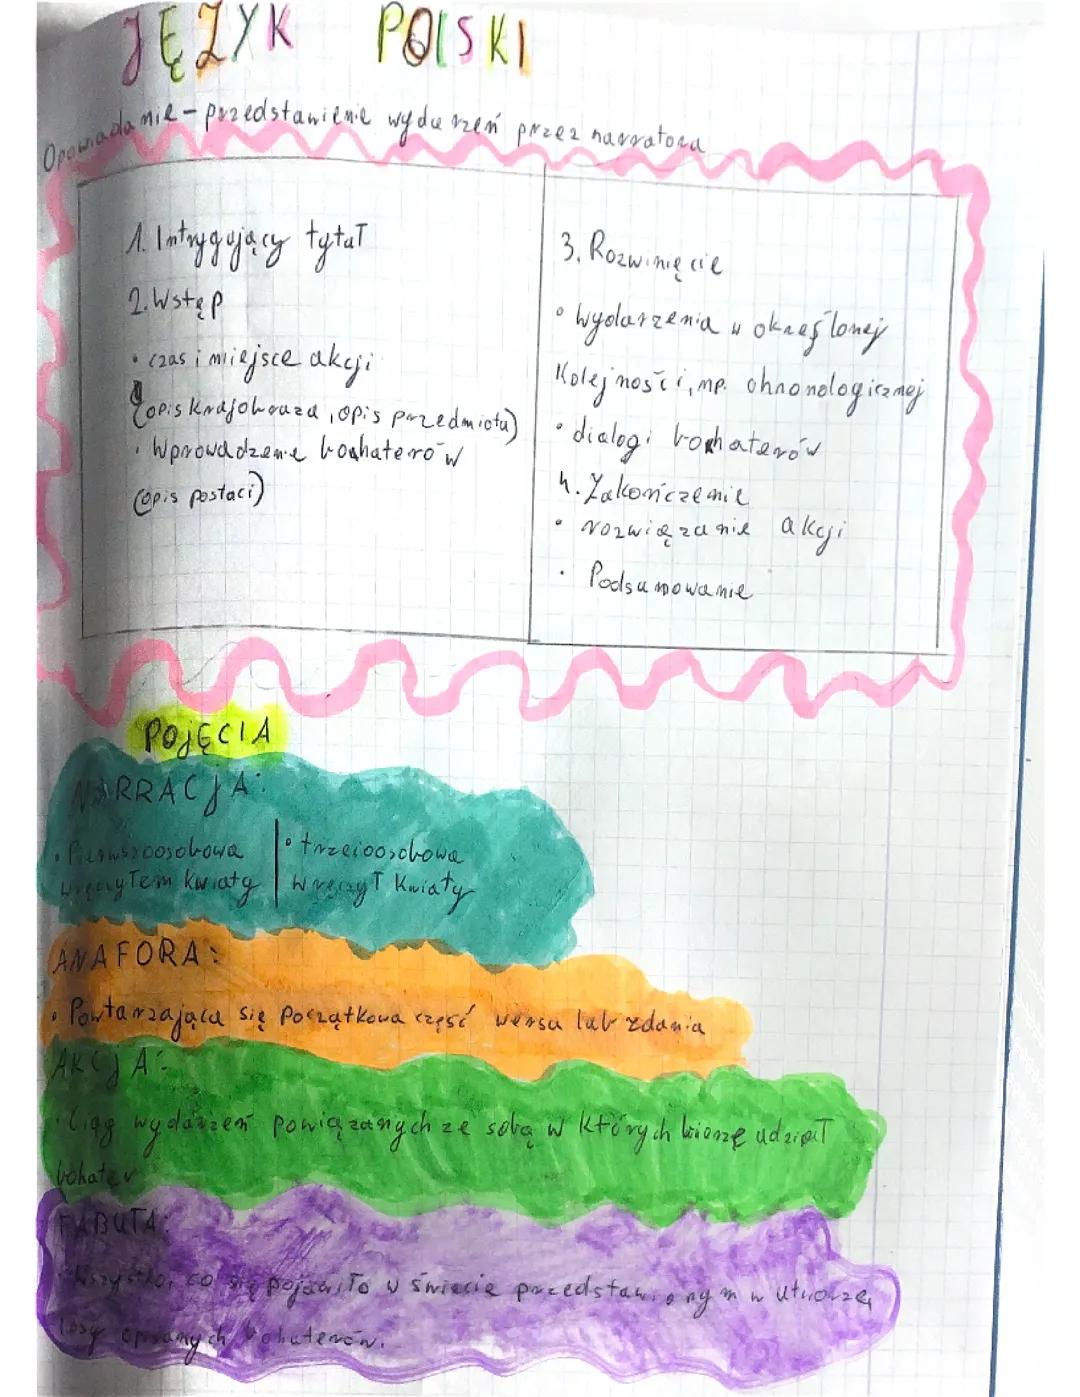 JĘZYK POLSKI
Opowiadanie - przedstawienie wydarzeń przez narratora
1. Intrygujący tytuł
2. Wstęp
• czas i miejsce akcji
(opis krajobrazu, opis przedmiotu)
• Wprowadzenie bohaterów
(opis postaci)
3. Rozwinięcie
• wydarzenia w określonej
kolejności, np. chronologicznej
• dialogi bohaterów
4. Zakończenie
• rozwiązanie akcji
• Podsumowanie
POJĘCIA
NARRACJA:
• Pierwszoosobowa
Wręczyłem kwiaty
• trzecioosobowa
Wręczył kwiaty
ANAFORA:
• Powtarzająca się początkowa część wersu lub zdania
AKCJA:
• Ciąg wydarzeń powiązanych ze sobą w których bierze udział
bohater
FABUŁA:
• Wszystko, co się pojawiło w świecie przedstawionym w utworze,
losy opisanych bohaterów.